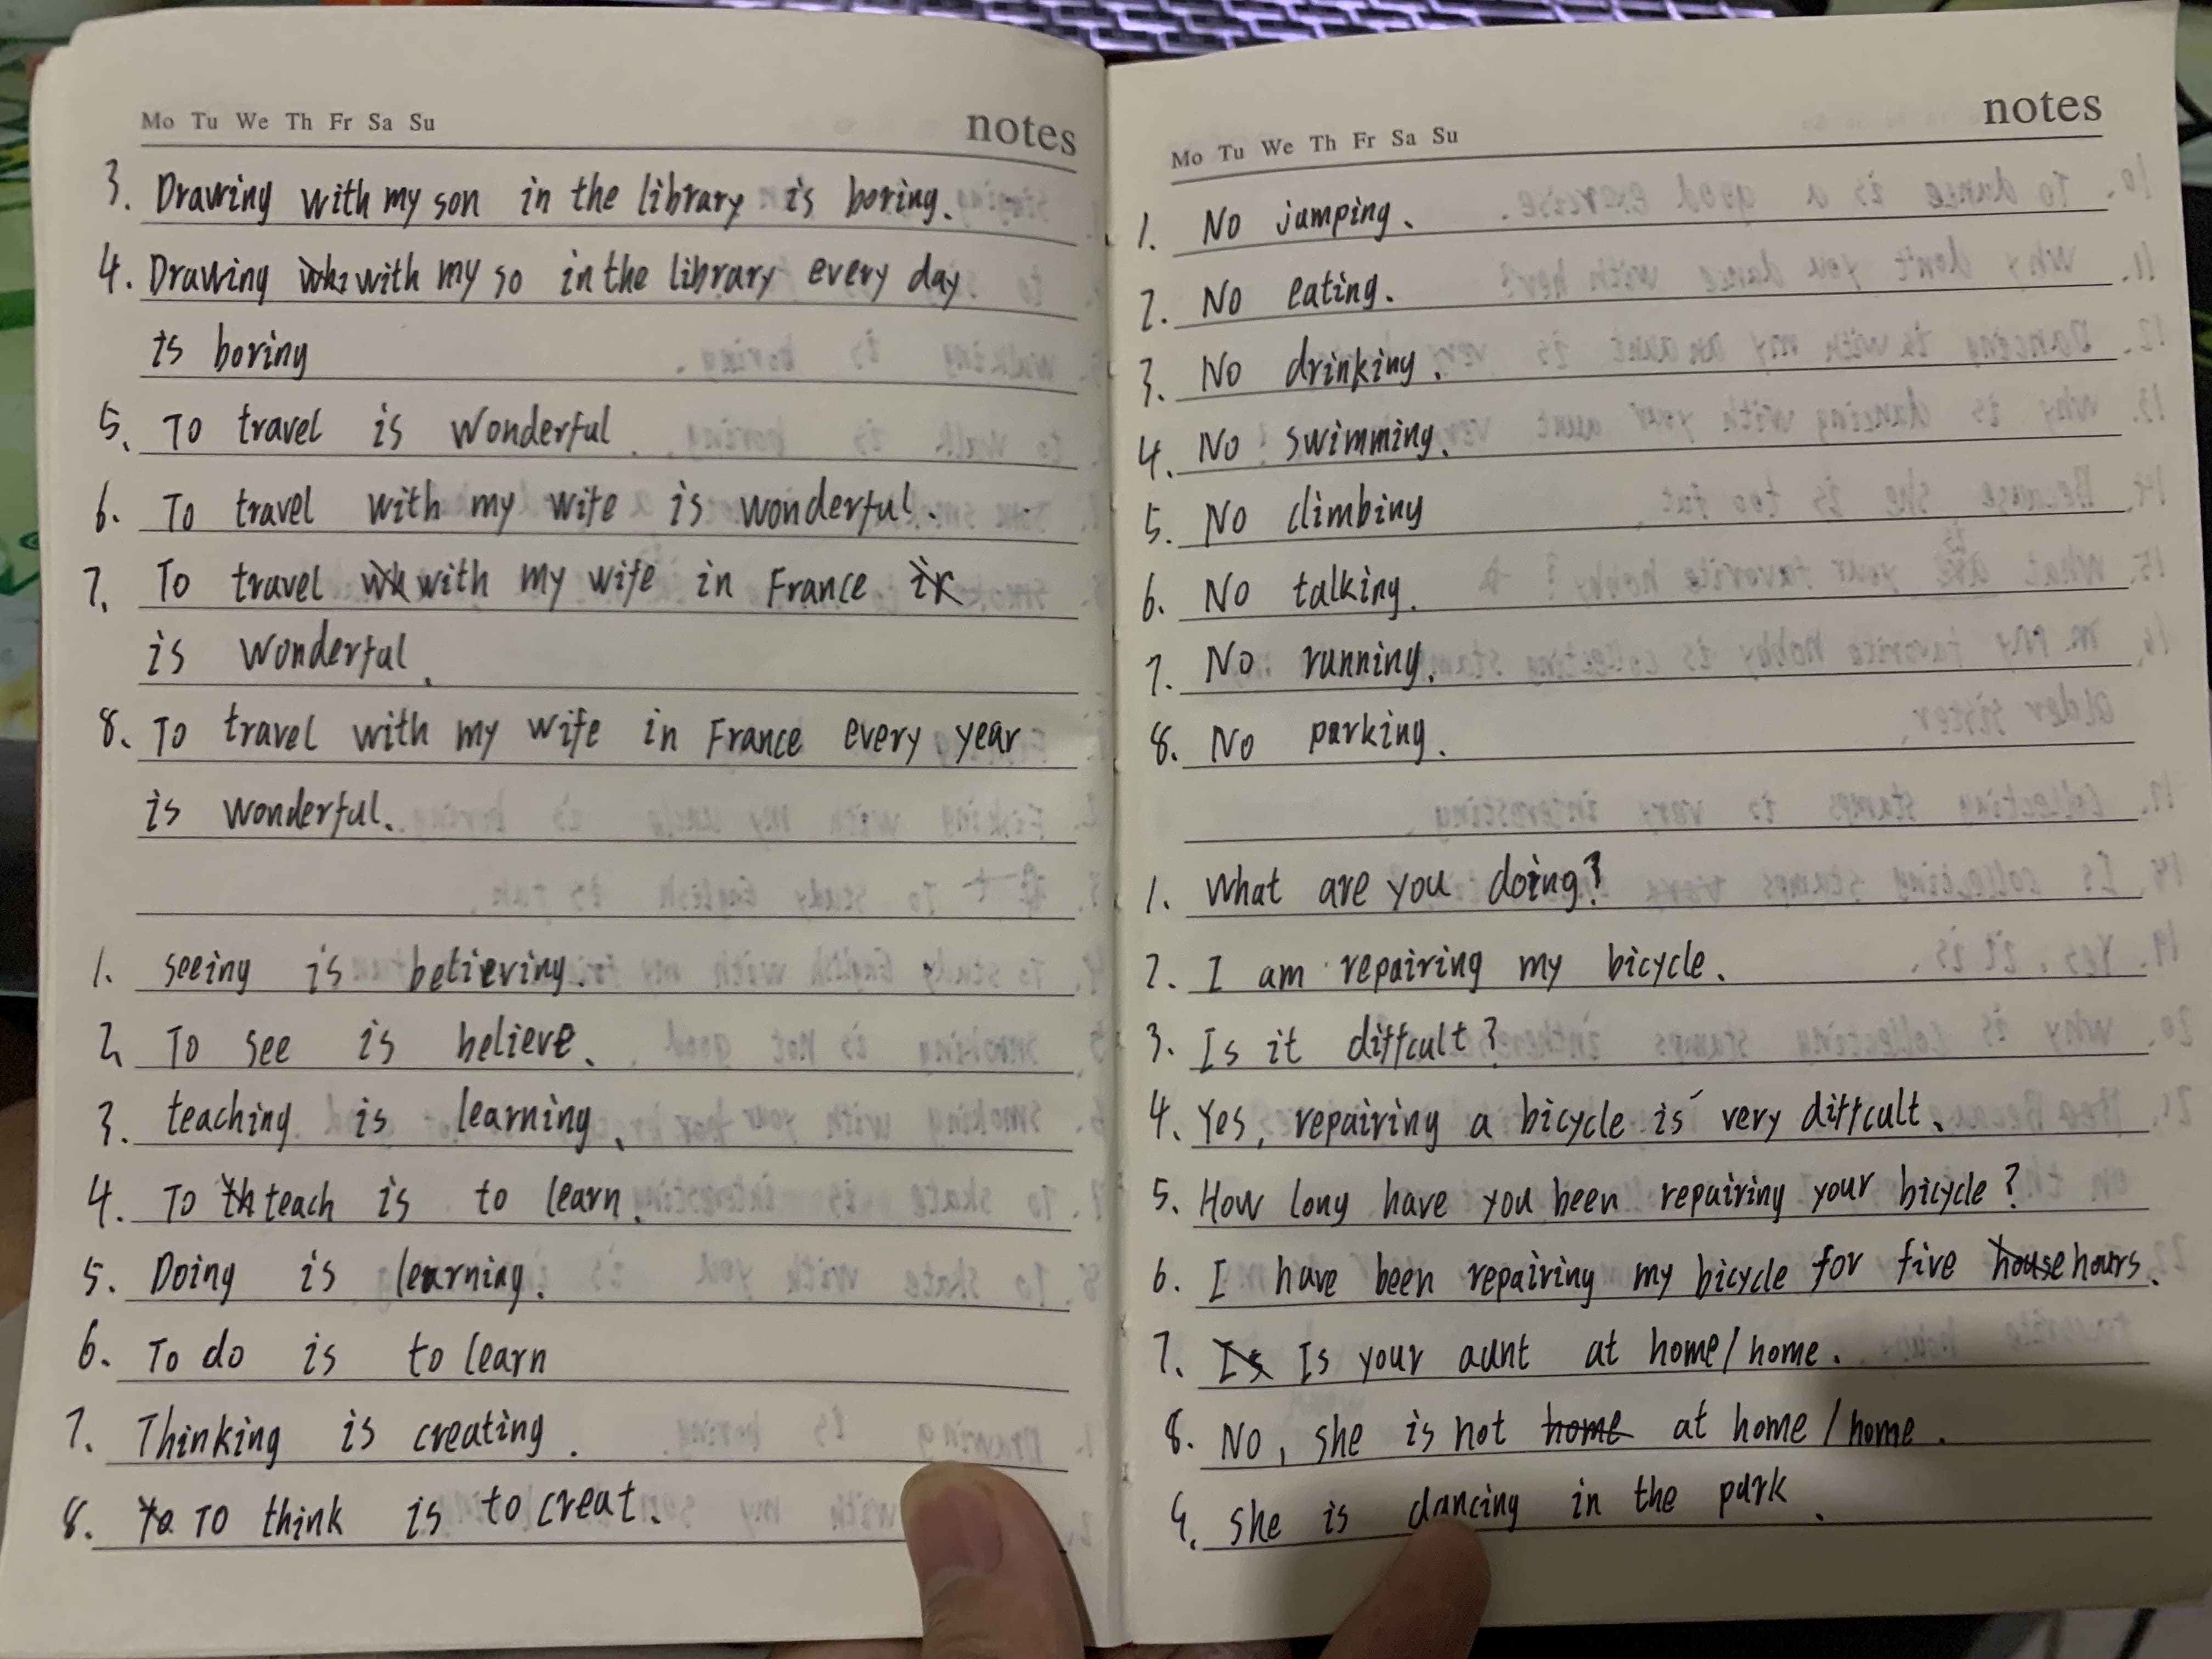 Mo Tu We Th Fr Sa Su notes
3. Drawing with my son in the library is boring.
4. Drawing with my so in the library every day
is boring
5. To travel is wonderful.
6. To travel with my wife is wonderful.
7. To travel with my wife in France
is wonderful.
8. To travel with my wife in France every year
is wonderful.
1. seeing is believing.
2. To see is believe.
3. teaching is learning.
4. To teach is to learn.
5. Doing is learning.
6. To do is to learn
7. Thinking is creating.
8. To think is to creat.
Mo Tu We Th Fr Sa Su notes
1. No jumping.
2. No eating.
3. No drinking.
4. No swimming.
5. No climbing
6. No talking.
7. No running.
8. No parking.
1. What are you doing?
2. I am repairing my bicycle.
3. Is it diffcult?
4. Yes, repairing a bicycle is very diffcult.
5. How long have you been repairing your bicycle?
6. I have been repairing my bicycle for five hours.
7. Is your aunt at home/home.
8. No, she is not at home/home.
9. she is dancing in the park.